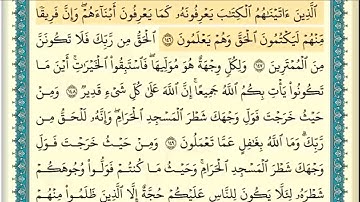 ٱلَّذِينَ ءَاتَيْنَٰهُمُ ٱلْكِتَٰبَ يَعْرِفُونَهُۥ كَمَا يَعْرِفُونَ أَبْنَآءَهُمْ ۖ وَإِنَّ فَرِيقًا
مِّنْهُمْ لَيَكْتُمُونَ ٱلْحَقَّ وَهُمْ يَعْلَمُونَ ١٤٦ ٱلْحَقُّ مِن رَّبِّكَ فَلَا تَكُونَنَّ
مِنَ ٱلْمُمْتَرِينَ ١٤٧ وَلِكُلٍّ وِجْهَةٌ هُوَ مُوَلِّيهَا ۖ فَٱسْتَبِقُوا۟ ٱلْخَيْرَٰتِ ۚ أَيْنَ مَا
تَكُونُوا۟ يَأْتِ بِكُمُ ٱللَّهُ جَمِيعًا ۚ إِنَّ ٱللَّهَ عَلَىٰ كُلِّ شَىْءٍ قَدِيرٌ ١٤٨ وَمِنْ
حَيْثُ خَرَجْتَ فَوَلِّ وَجْهَكَ شَطْرَ ٱلْمَسْجِدِ ٱلْحَرَامِ ۖ وَإِنَّهُۥ لَلْحَقُّ مِن
رَّبِّكَ ۗ وَمَا ٱللَّهُ بِغَٰفِلٍ عَمَّا تَعْمَلُونَ ١٤٩ وَمِنْ حَيْثُ خَرَجْتَ فَوَلِّ
وَجْهَكَ شَطْرَ ٱلْمَسْجِدِ ٱلْحَرَامِ ۚ وَحَيْثُ مَا كُنتُمْ فَوَلُّوا۟ وُجُوهَكُمْ
شَطْرَهُۥ لِئَلَّا يَكُونَ لِلنَّاسِ عَلَيْكُمْ حُجَّةٌ إِلَّا ٱلَّذِينَ ظَلَمُوا۟ مِنْهُمْ